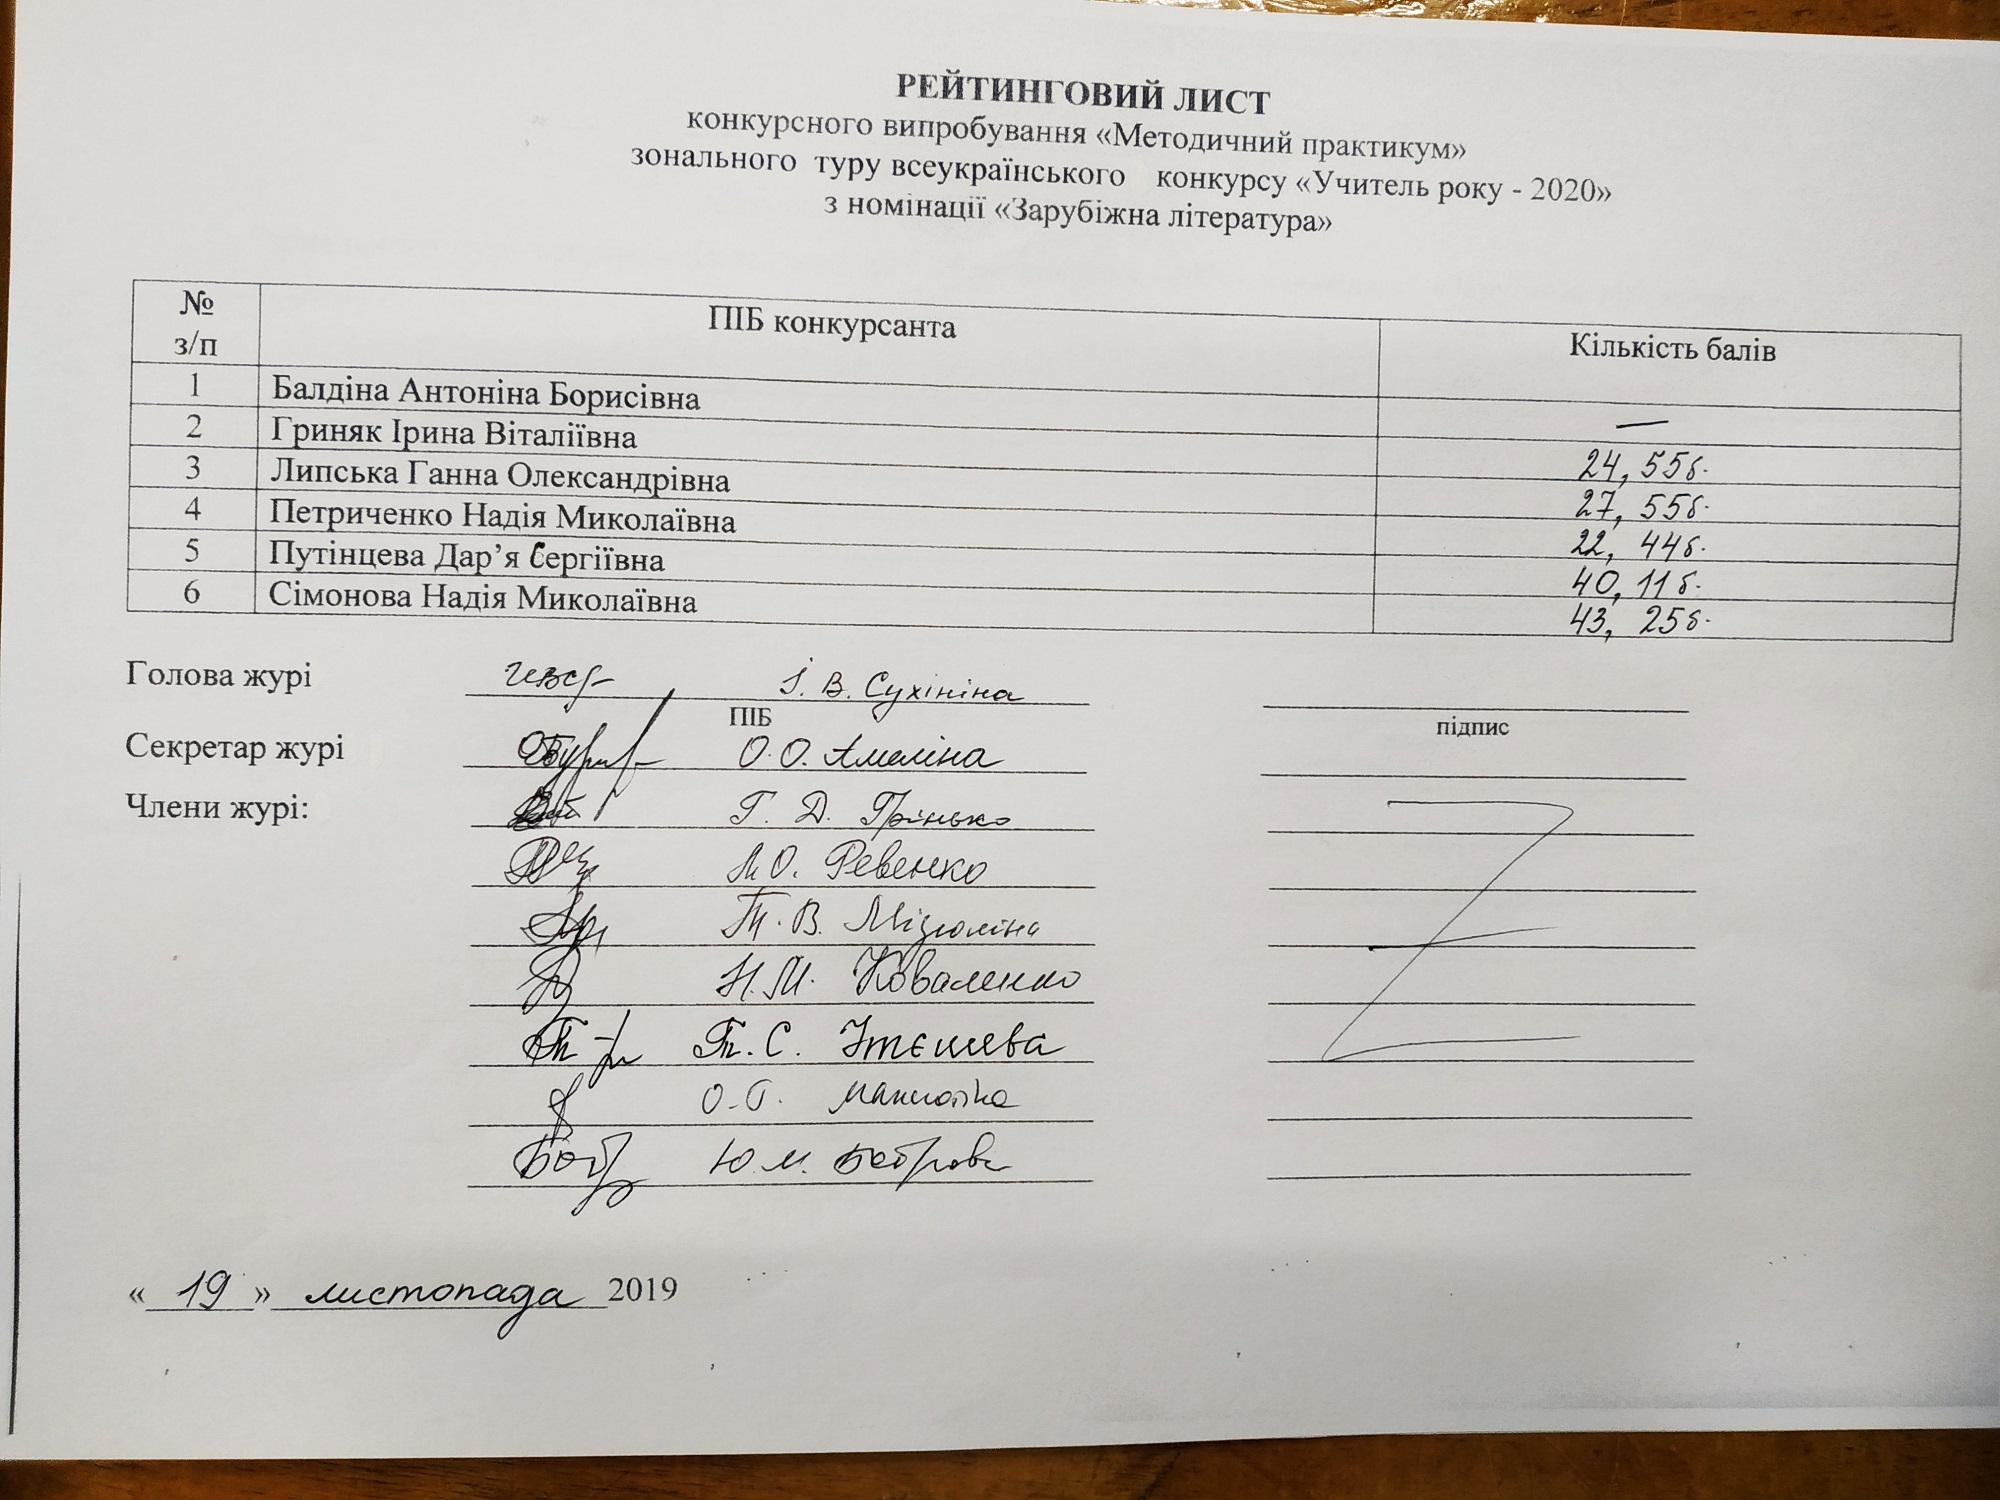 РЕЙТИНГОВИЙ ЛИСТ
конкурсного випробування «Методичний практикум»
зонального туру всеукраїнського конкурсу «Учитель року - 2020»
з номінації «Зарубіжна література»
№ з/п ПІБ конкурсанта Кількість балів
1 Балдіна Антоніна Борисівна —
2 Гриняк Ірина Віталіївна 24,55б.
3 Липська Ганна Олександрівна 27,55б.
4 Петриченко Надія Миколаївна 22,44б.
5 Путінцева Дар’я Сергіївна 40,11б.
6 Сімонова Надія Миколаївна 43,25б.
Голова журі І. В. Сухініна
ПІБ підпис
Секретар журі О.О. Амеліна
Члени журі: Г. Д. Грінько
Л.О. Ревенко
Т.В. Мізюліна
Н.М. Коваленко
Т.С. Утєшева
О.Г.
Ю.М.
«19» листопада 2019